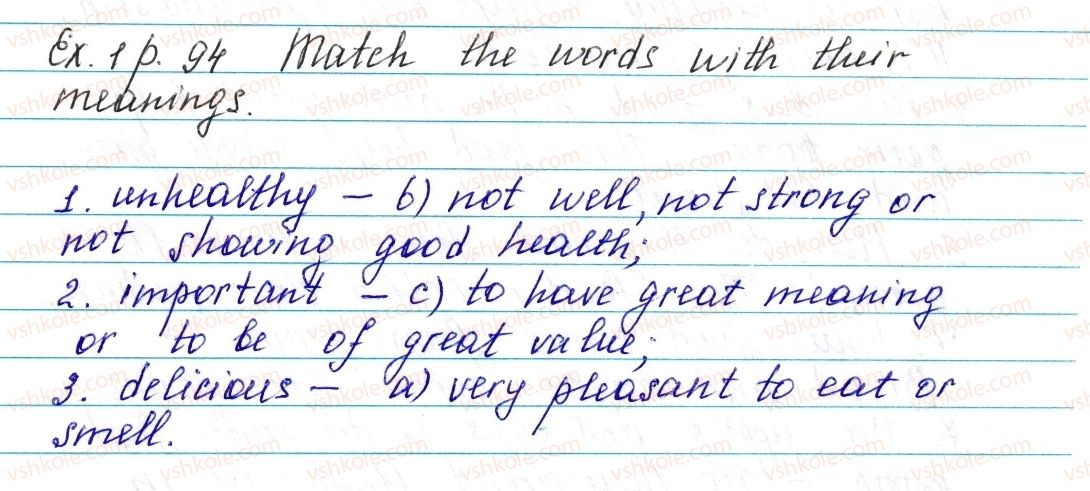 Ex. 1 p. 94 Match the words with their
meanings.
1. unhealthy – b) not well, not strong or
not showing good health;
2. important – c) to have great meaning
or to be of great value;
3. delicious – a) very pleasant to eat or
smell.